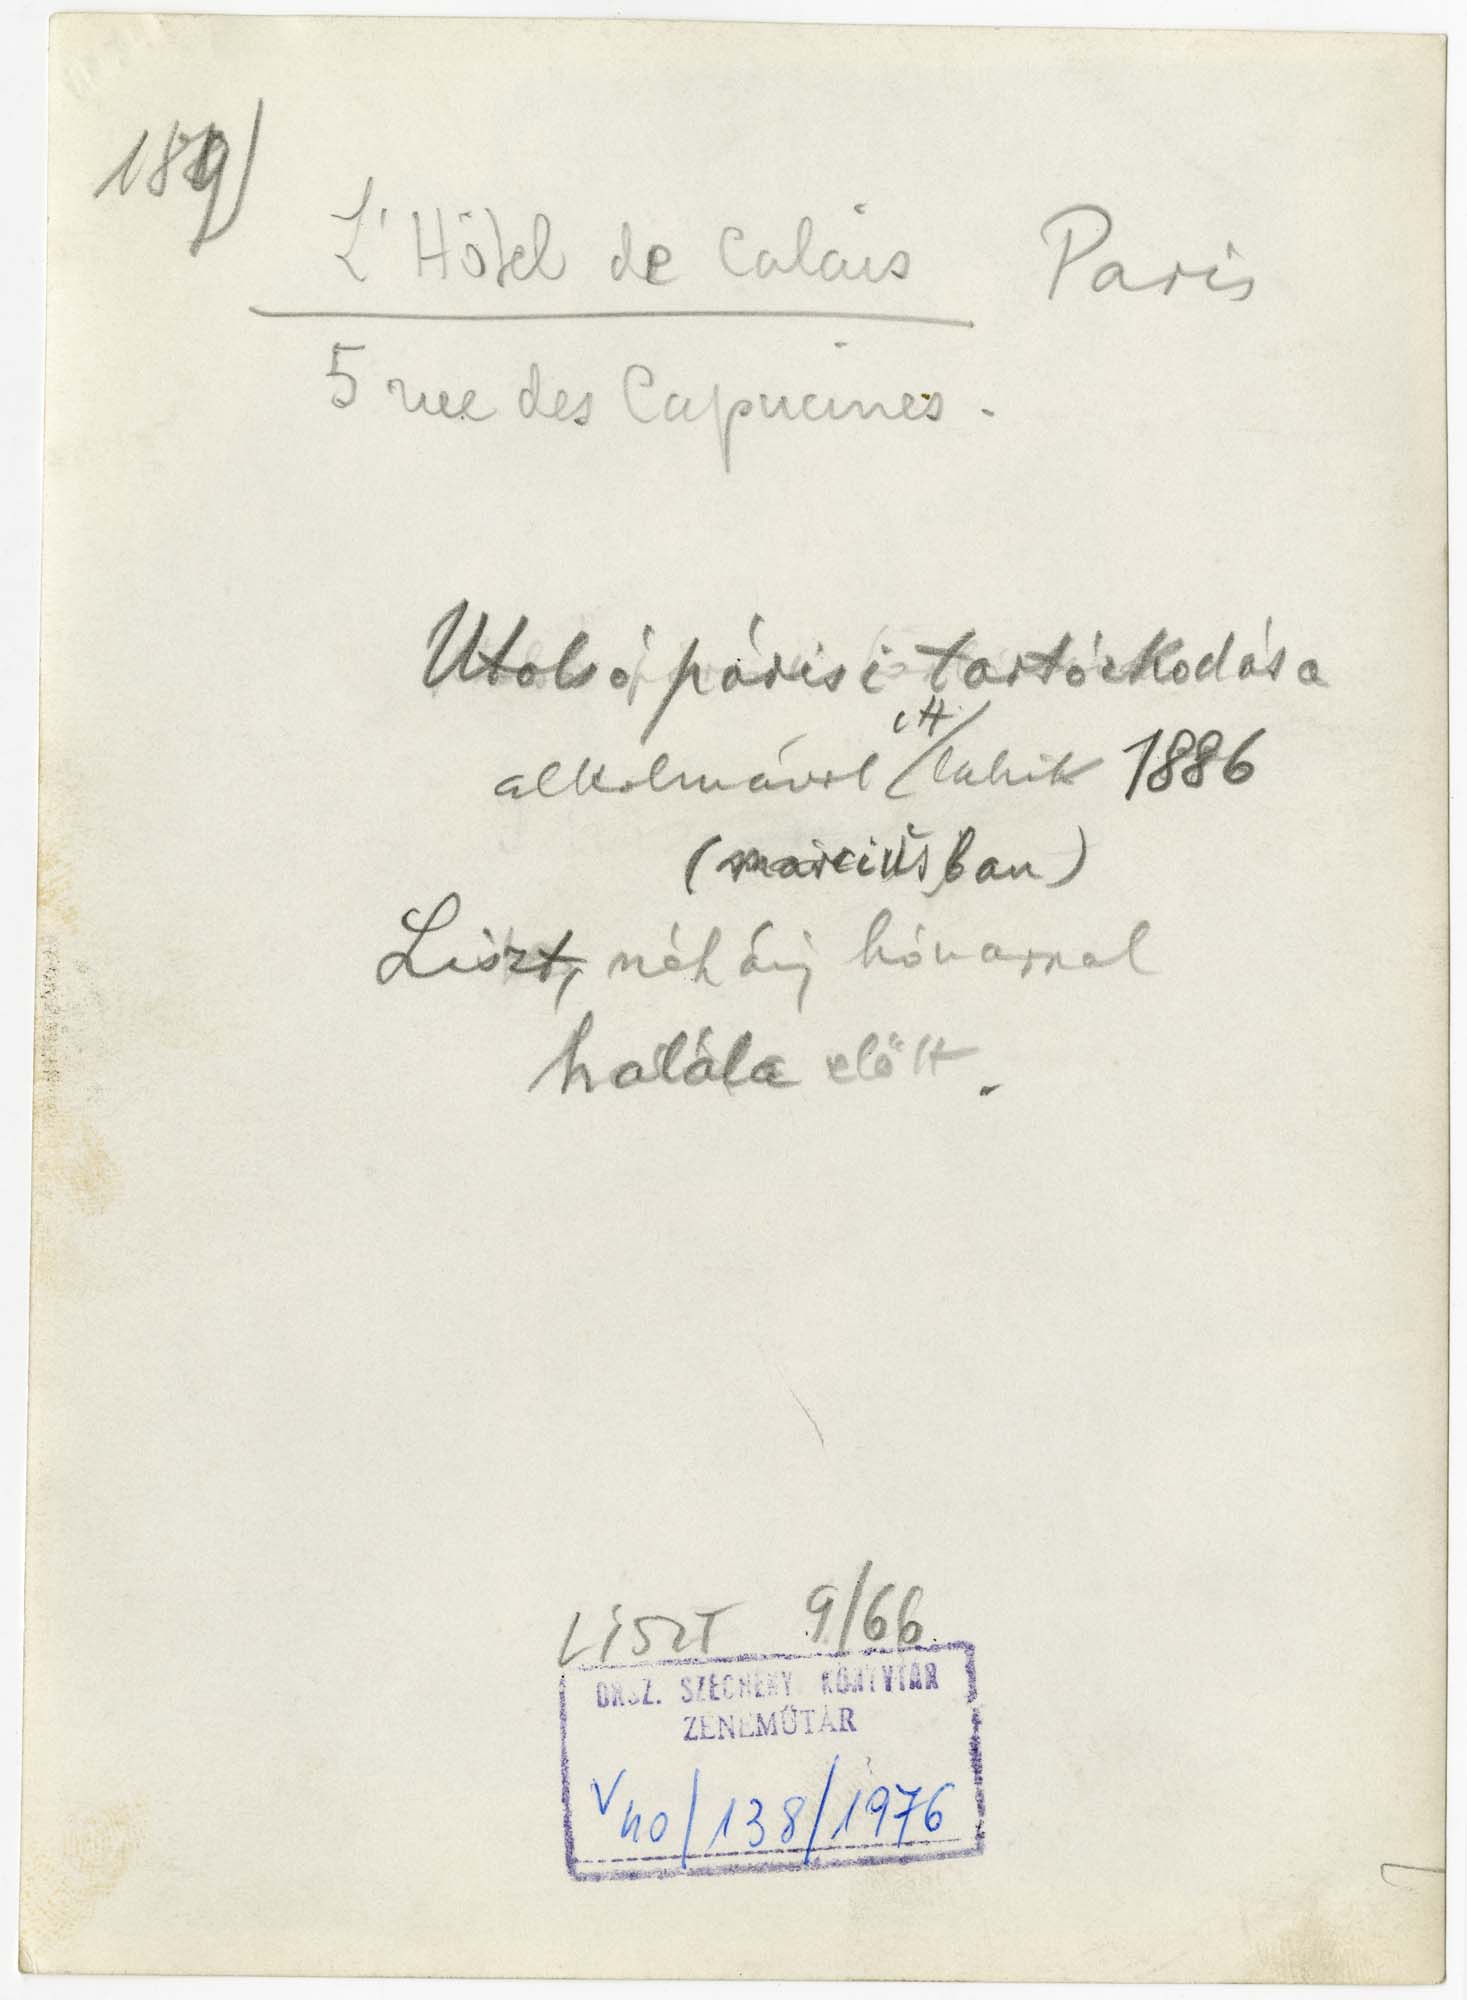 L'Hôtel de Calais Paris
5 rue des Capucines.
Utolsó párisi tartózkodása
alkalmával itt lakik 1886
(márciusban)
Liszt, néhány hónappal
halála előtt.
LISZT 9/66
ORSZ. SZÉCHÉNYI KÖNYVTÁR
ZENEMŰTÁR
138/1976